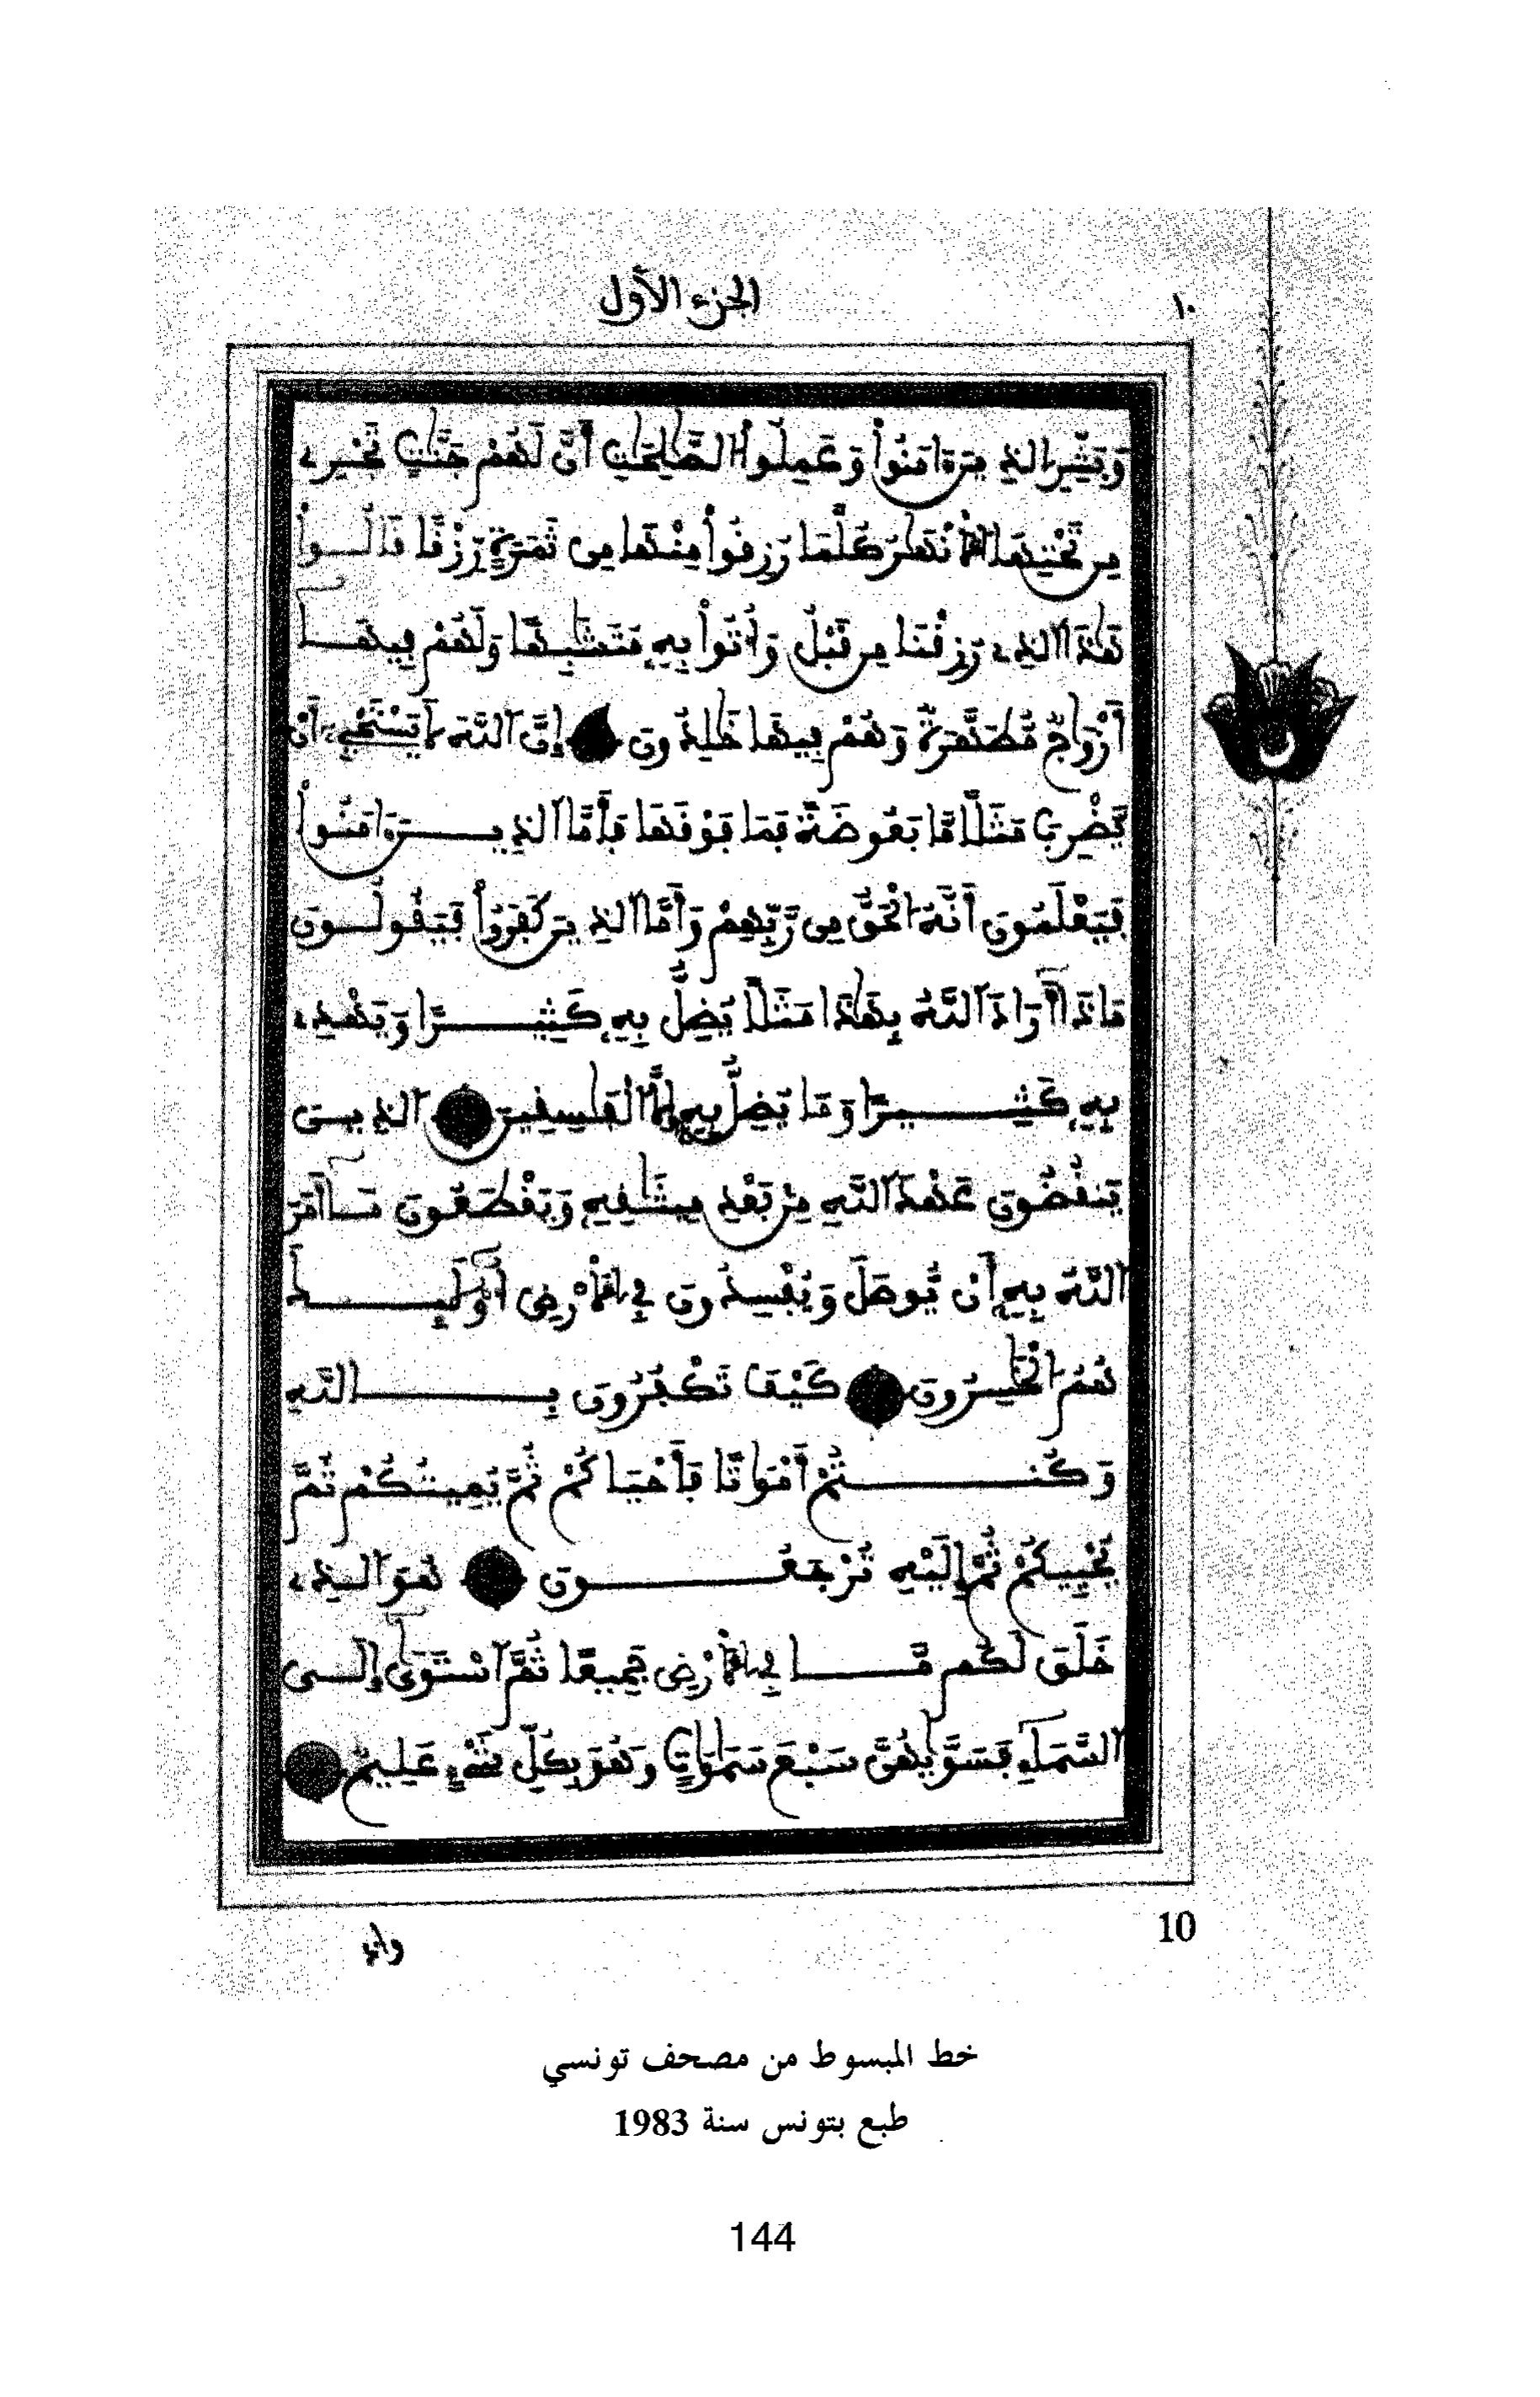 ١٠
الجزء الأول
وَبَشِّرِ الذِينَ ءَامَنُواْ وَعَمِلُواْ الصَّٰلِحَٰتِ أَنَّ لَهُمْ جَنَّٰتٍ تَجْرِے
مِن تَحْتِهَا اَلَانْهَٰرُ كُلَّمَا رُزِقُواْ مِنْهَا مِن ثَمَرَةٍ رِّزْقاً قَالُواْ
هَٰذَا اَلذِے رُزِقْنَا مِن قَبْلُ وَأُتُواْ بِهِۦ مُتَشَٰبِهاً وَلَهُمْ فِيهَا
أَزْوَٰجٌ مُّطَهَّرَةٌ وَهُمْ فِيهَا خَٰلِدُونَ إِنَّ اَللَّهَ لَا يَسْتَحْيِۦ أَنْ
يَّضْرِبَ مَثَلًا مَّا بَعُوضَةً فَمَا فَوْقَهَا فَأَمَّا اَلذِينَ ءَامَنُواْ
فَيَعْلَمُونَ أَنَّهُ اُلْحَقُّ مِن رَّبِّهِمْ وَأَمَّا اَلذِينَ كَفَرُواْ فَيَقُولُونَ
مَاذَا أَرَادَ اَللَّهُ بِهَٰذَا مَثَلًا يُضِلُّ بِهِۦ كَثِيراً وَيَهْدِے
بِهِۦ كَثِيراً وَمَا يُضِلُّ بِهِۦ إِلَّا اَلْفَٰسِقِينَ اَلذِينَ
يَنقُضُونَ عَهْدَ اَللَّهِ مِنۢ بَعْدِ مِيثَٰقِهِۦ وَيَقْطَعُونَ مَا أَمَرَ
اَللَّهُ بِهِۦ أَنْ يُّوصَلَ وَيُفْسِدُونَ فِي اِلَارْضِ أُوْلَٰئِكَ
هُمُ اُلْخَٰسِرُونَ كَيْفَ تَكْفُرُونَ بِاللَّهِ
وَكُنتُمْ أَمْوَٰتاً فَأَحْيَاكُمْ ثُمَّ يُمِيتُكُمْ ثُمَّ
يُحْيِيكُمْ ثُمَّ إِلَيْهِ تُرْجَعُونَ هُوَ اَلذِے
خَلَقَ لَكُم مَّا فِي اِلَارْضِ جَمِيعاً ثُمَّ اَسْتَوَىٰ إِلَى
اَلسَّمَاءِ فَسَوَّىٰهُنَّ سَبْعَ سَمَٰوَٰتٍ وَهُوَ بِكُلِّ شَےْءٍ عَلِيمٌ
10
وإذ
خط المبسوط من مصحف تونسي
طبع بتونس سنة 1983
144